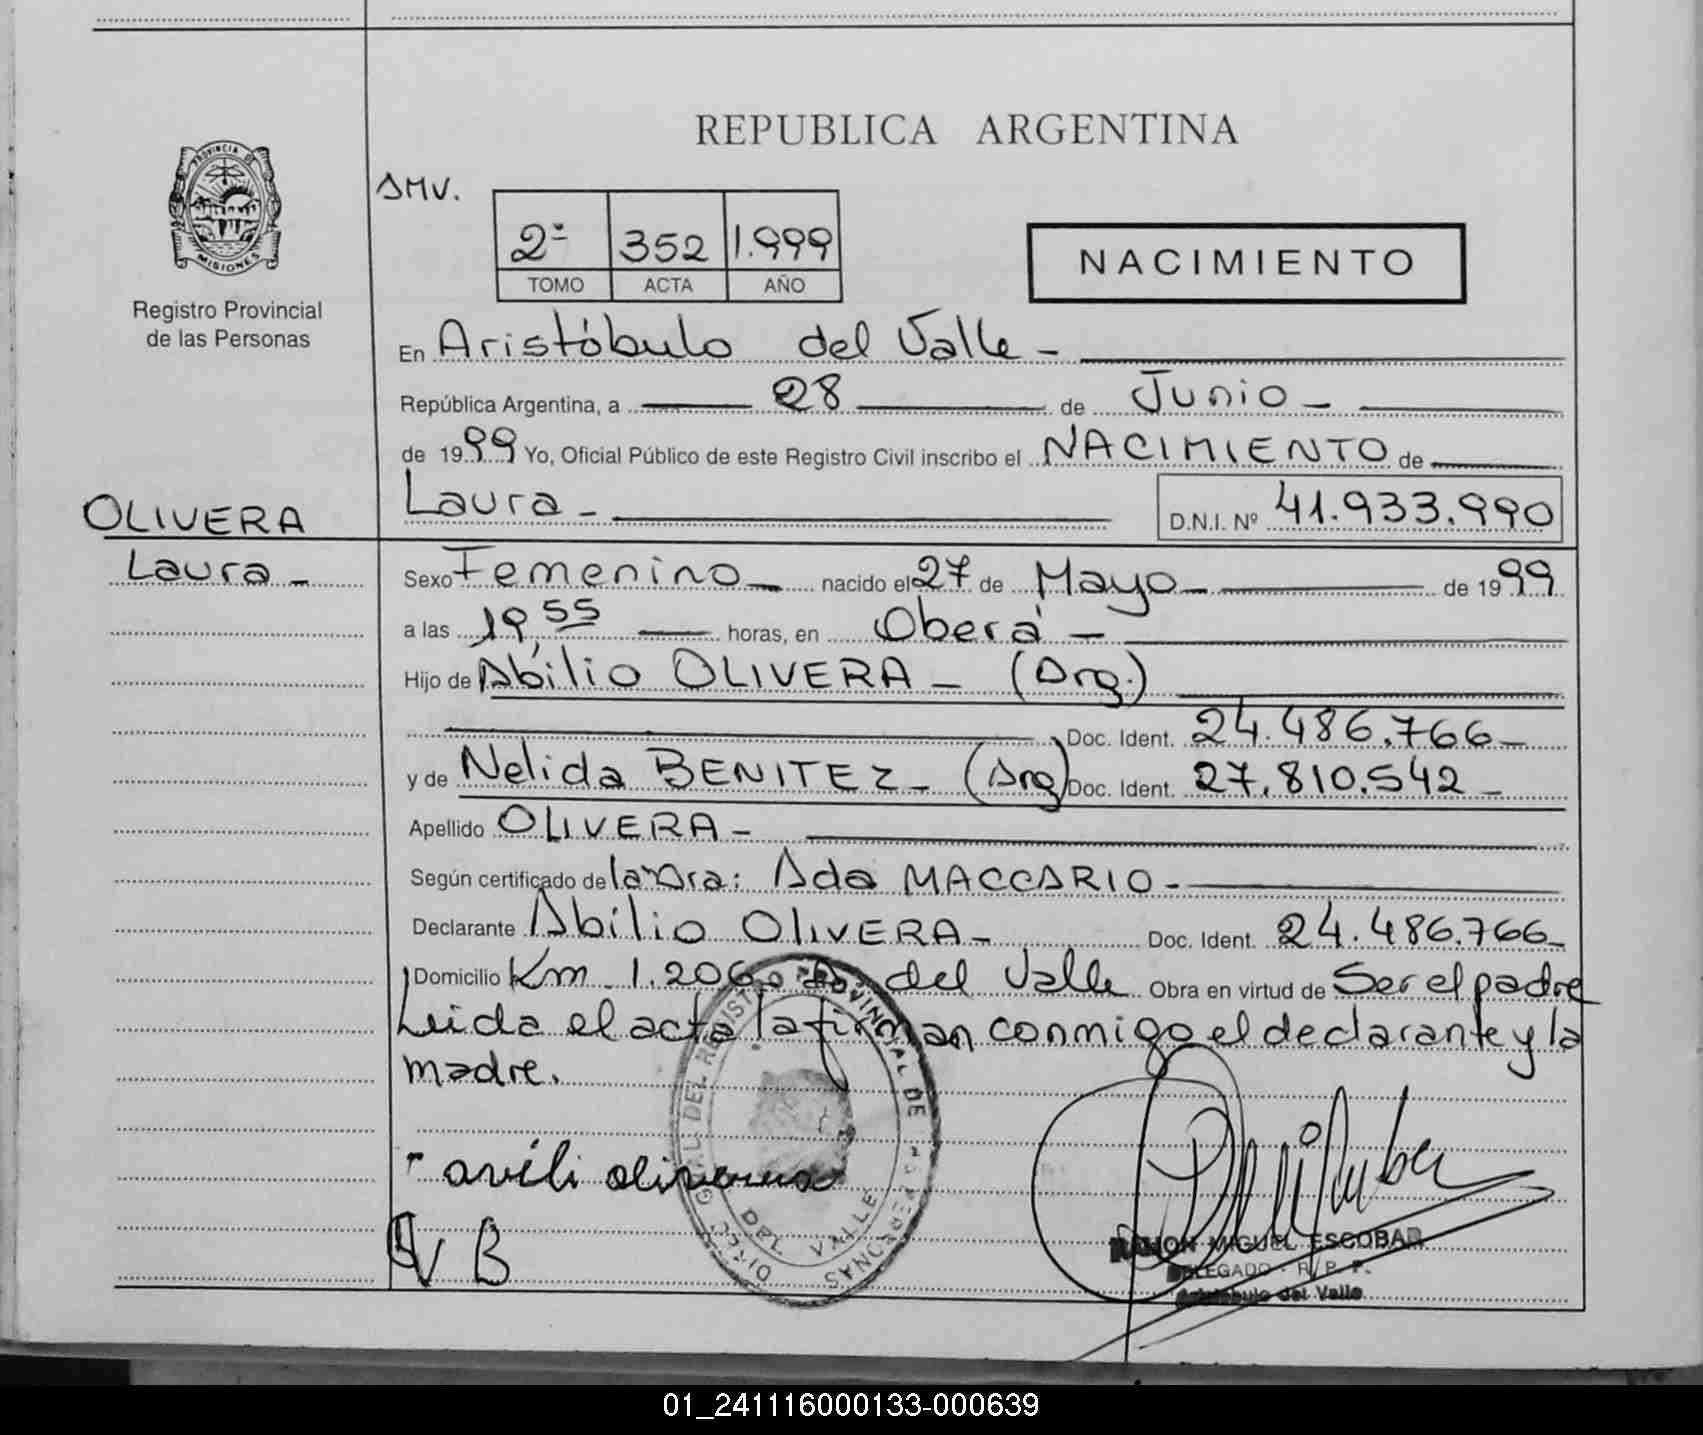 REPUBLICA ARGENTINA
PROVINCIA DE
MISIONES
Registro Provincial
de las Personas
SMV.
2ª 352 1.999
TOMO ACTA AÑO
NACIMIENTO
En Aristóbulo del Valle -
República Argentina, a 28 de Junio -
de 1999 Yo, Oficial Público de este Registro Civil inscribo el NACIMIENTO de
Laura - D.N.I. Nº 41.933.990
OLIVERA
Laura -
Sexo Femenino - nacido el 27 de Mayo - de 1999
a las 19,55 horas, en Oberá -
Hijo de Abilio OLIVERA - (Arg.)
Doc. Ident. 24.486.766 -
y de Nelida BENITEZ - (Arg) Doc. Ident. 27.810.542 -
Apellido OLIVERA -
Según certificado de la Dra: Ada MACCARIO -
Declarante Abilio OlIVERA - Doc. Ident. 24.486.766 -
Domicilio Km 1.206 A. del Valle Obra en virtud de Ser el padre
Leida el acta la firman conmigo el declarante y la
madre.
avili olivera
V B
DIRECC. GRAL DEL REGISTRO PROVINCIAL DE LAS PERSONAS
DEL VALLE
RAMON MIGUEL ESCOBAR
DELEGADO - R. P. P.
Aristobulo del Valle
01_241116000133-000639